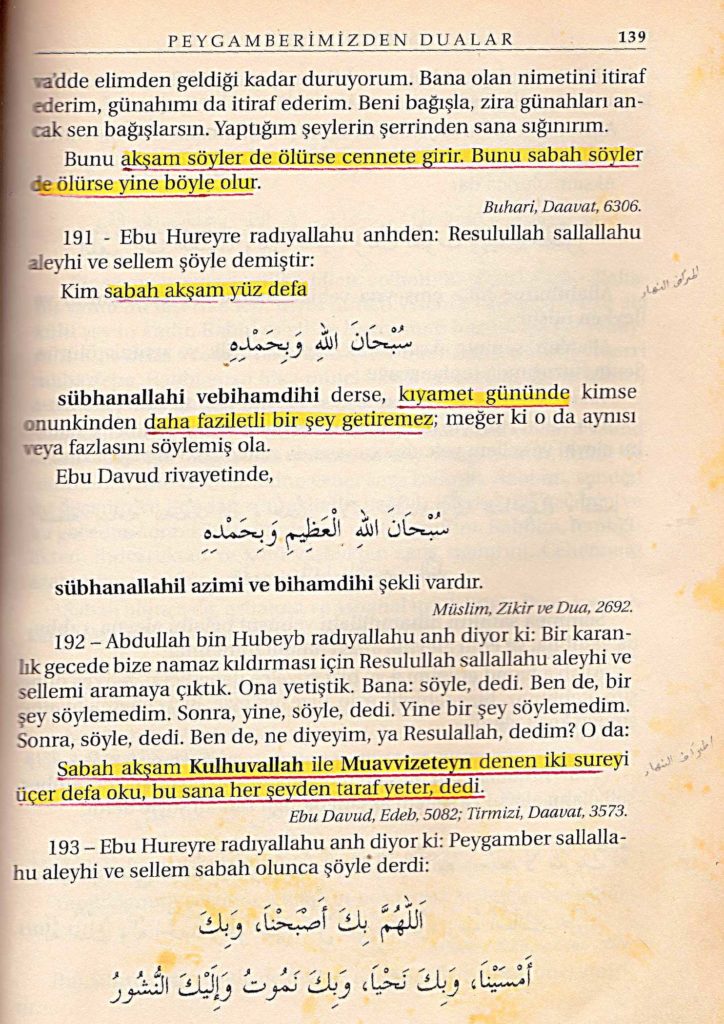 PEYGAMBERİMİZDEN DUALAR 139
va'dde elimden geldiği kadar duruyorum. Bana olan nimetini itiraf
ederim, günahımı da itiraf ederim. Beni bağışla, zira günahları an-
cak sen bağışlarsın. Yaptığım şeylerin şerrinden sana sığınırım.
Bunu akşam söyler de ölürse cennete girir. Bunu sabah söyler
de ölürse yine böyle olur.
Buhari, Daavat, 6306.
191 - Ebu Hureyre radıyallahu anhden: Resulullah sallallahu
aleyhi ve sellem şöyle demiştir:
Kim sabah akşam yüz defa
سُبْحَانَ اللهِ وَبِحَمْدِهِ
sübhanallahi vebihamdihi derse, kıyamet gününde kimse
onunkinden daha faziletli bir şey getiremez; meğer ki o da aynısı
veya fazlasını söylemiş ola.
Ebu Davud rivayetinde,
سُبْحَانَ اللهِ الْعَظِيمِ وَبِحَمْدِهِ
sübhanallahil azimi ve bihamdihi şekli vardır.
Müslim, Zikir ve Dua, 2692.
192 – Abdullah bin Hubeyb radıyallahu anh diyor ki: Bir karan-
lık gecede bize namaz kıldırması için Resulullah sallallahu aleyhi ve
sellemi aramaya çıktık. Ona yetiştik. Bana: söyle, dedi. Ben de, bir
şey söylemedim. Sonra, yine, söyle, dedi. Yine bir şey söylemedim.
Sonra, söyle, dedi. Ben de, ne diyeyim, ya Resulallah, dedim? O da:
Sabah akşam Kulhuvallah ile Muavvizeteyn denen iki sureyi
üçer defa oku, bu sana her şeyden taraf yeter, dedi.
Ebu Davud, Edeb, 5082; Tirmizi, Daavat, 3573.
193 – Ebu Hureyre radıyallahu anh diyor ki: Peygamber sallalla-
hu aleyhi ve sellem sabah olunca şöyle derdi:
اَللّٰهُمَّ بِكَ أَصْبَحْنَا، وَبِكَ
أَمْسَيْنَا، وَبِكَ نَحْيَا، وَبِكَ نَمُوتُ وَإِلَيْكَ النُّشُورُ